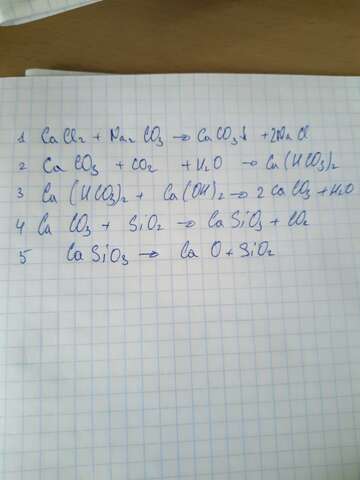 1 CaCl2 + Na2 CO3 → CaCO3↓ +2NaCl
2 Ca CO3 + CO2 + H2O → Ca(HCO3)2
3 Ca (HCO3)2 + Ca(OH)2 → 2 CaCO3 + H2O
4 Ca CO3 + SiO2 → Ca SiO3 + CO2
5 Ca SiO3 → Ca O + SiO2